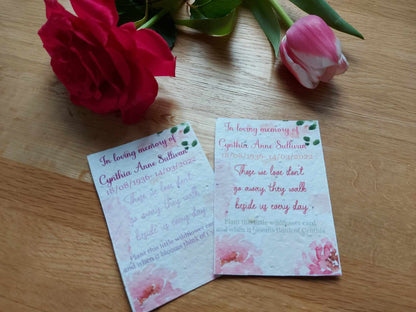 In loving memory of
Cynthia Anne Sullivan
18/08/1936-14/03/2022
Those we love don't
go away, they walk
beside us every day
Plant this little wildflower card
and when it blooms think of C
In loving memory of
Cynthia Anne Sullivan
18/08/1936-14/03/2022
Those we love don't
go away, they walk
beside us every day
Plant this little wildflower card
and when it blooms think of Cynthia